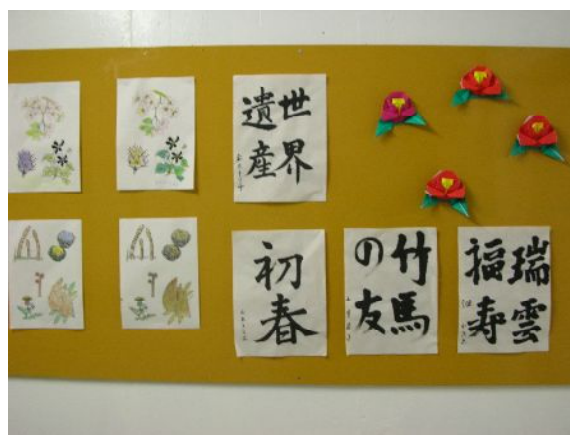 世界
遺産
初春
竹馬
の友
瑞雲
福寿